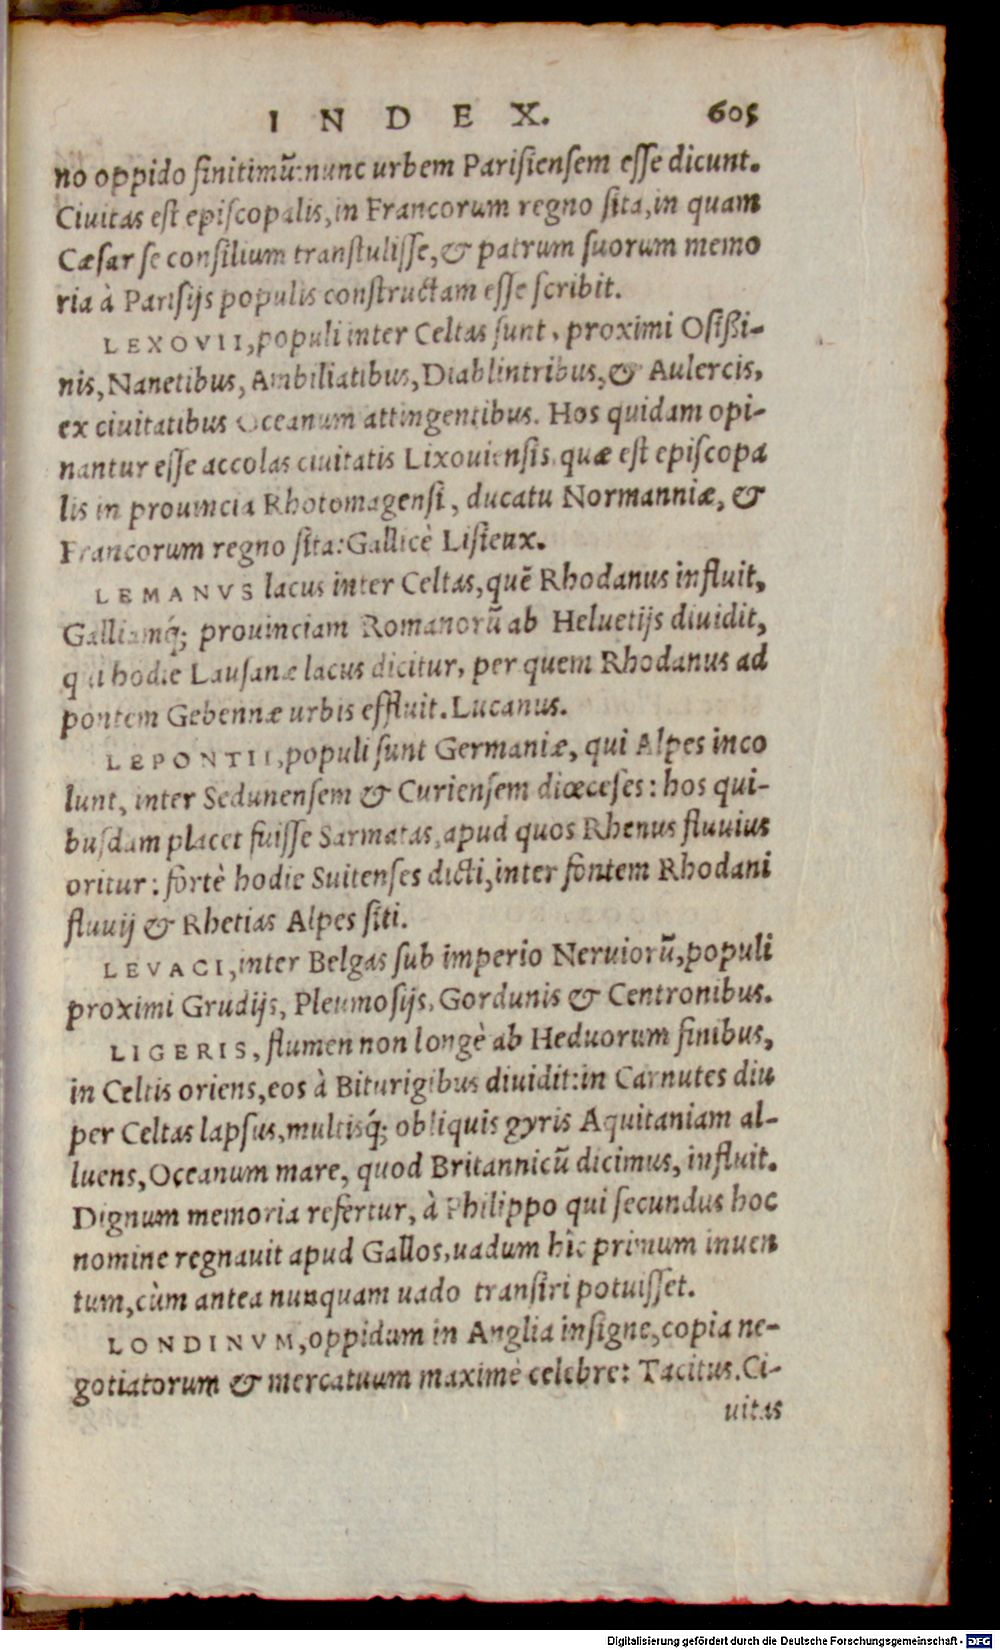 INDEX. 605
no oppido finitimū: nunc urbem Parisiensem esse dicunt.
Ciuitas est episcopalis, in Francorum regno sita, in quam
Cæsar se consilium transtulisse, & patrum suorum memo
ria à Parisijs populis constructam esse scribit.
LEXOVII, populi inter Celtas sunt, proximi Osißi-
nis, Nanetibus, Ambiliatibus, Diablintribus, & Aulercis,
ex ciuitatibus Oceanum attingentibus. Hos quidam opi-
nantur esse accolas ciuitatis Lixouiensis, quæ est episcopa
lis in prouincia Rhotomagensi, ducatu Normanniæ, &
Francorum regno sita: Gallicè Lisieux.
LEMANVS lacus inter Celtas, quē Rhodanus influit,
Galliamq́; prouinciam Romanorū ab Heluetijs diuidit,
qui hodie Lausanæ lacus dicitur, per quem Rhodanus ad
pontem Gebennæ urbis effluit. Lucanus.
LEPONTII, populi sunt Germaniæ, qui Alpes inco
lunt, inter Sedunensem & Curiensem diœceses: hos qui-
busdam placet fuisse Sarmatas, apud quos Rhenus fluuius
oritur: fortè hodie Suitenses dicti, inter fontem Rhodani
fluuij & Rhetias Alpes siti.
LEVACI, inter Belgas sub imperio Neruiorū, populi
proximi Grudijs, Pleumosijs, Gordunis & Centronibus.
LIGERIS, flumen non longè ab Heduorum finibus,
in Celtis oriens, eos à Biturigibus diuidit: in Carnutes diu
per Celtas lapsus, multisq́; obliquis gyris Aquitaniam al-
luens, Oceanum mare, quod Britannicū dicimus, influit.
Dignum memoria refertur, à Philippo qui secundus hoc
nomine regnauit apud Gallos, uadum hîc primum inuen
tum, cùm antea nunquam uado transiri potuisset.
LONDINVM, oppidum in Anglia insigne, copia ne-
gotiatorum & mercatuum maximè celebre: Tacitus. Ci-
uitas
Digitalisierung gefördert durch die Deutsche Forschungsgemeinschaft - DFG